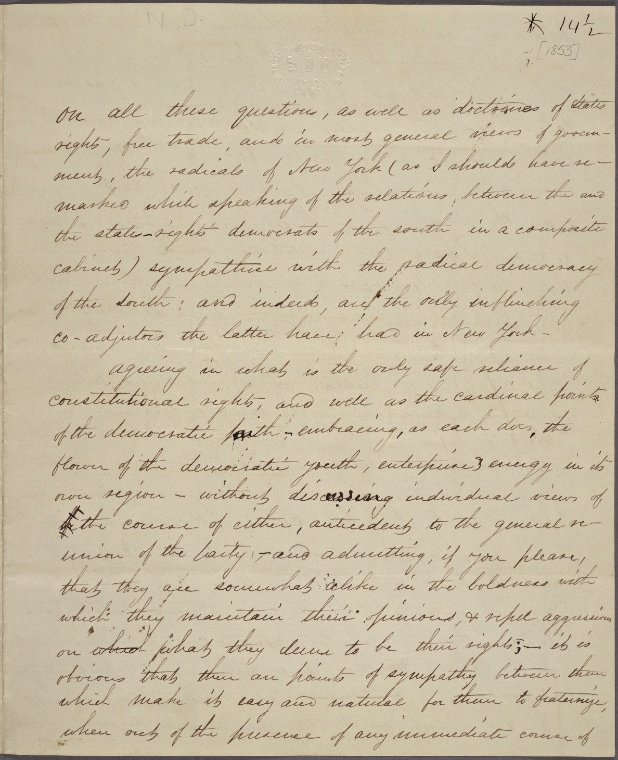 14 1/2
[1853]
on all these questions, as well as doctrines of states
rights, free trade, and in most general views of govern-
ment, the radicals of New York (as I should have re-
marked while speaking of the relations, between the and
the state-rights democrats of the south in a composite
cabinet) sympathise with the radical democracy
of the south: and indeed, are the only inflinching
co-adjutors the latter have; had in New York-
agreeing in what is the only safe reliance of
constitutional rights, and well as the cardinal points
of the democratic faith,- embracing, as each does, the
flower of the democratic youth, enterprise & energy in its
own region - without discussing individual views of
the course of either, antecedent to the general re-
union of the party,- and admitting, if you please,
that they are somewhat alike in the boldness with
which they maintain their opinions, & repel aggression
on which what they deem to be their rights;- it is
obvious that there are points of sympathy between them
which make it easy and natural for them to fraternize,
when out of the presence of any immediate course of